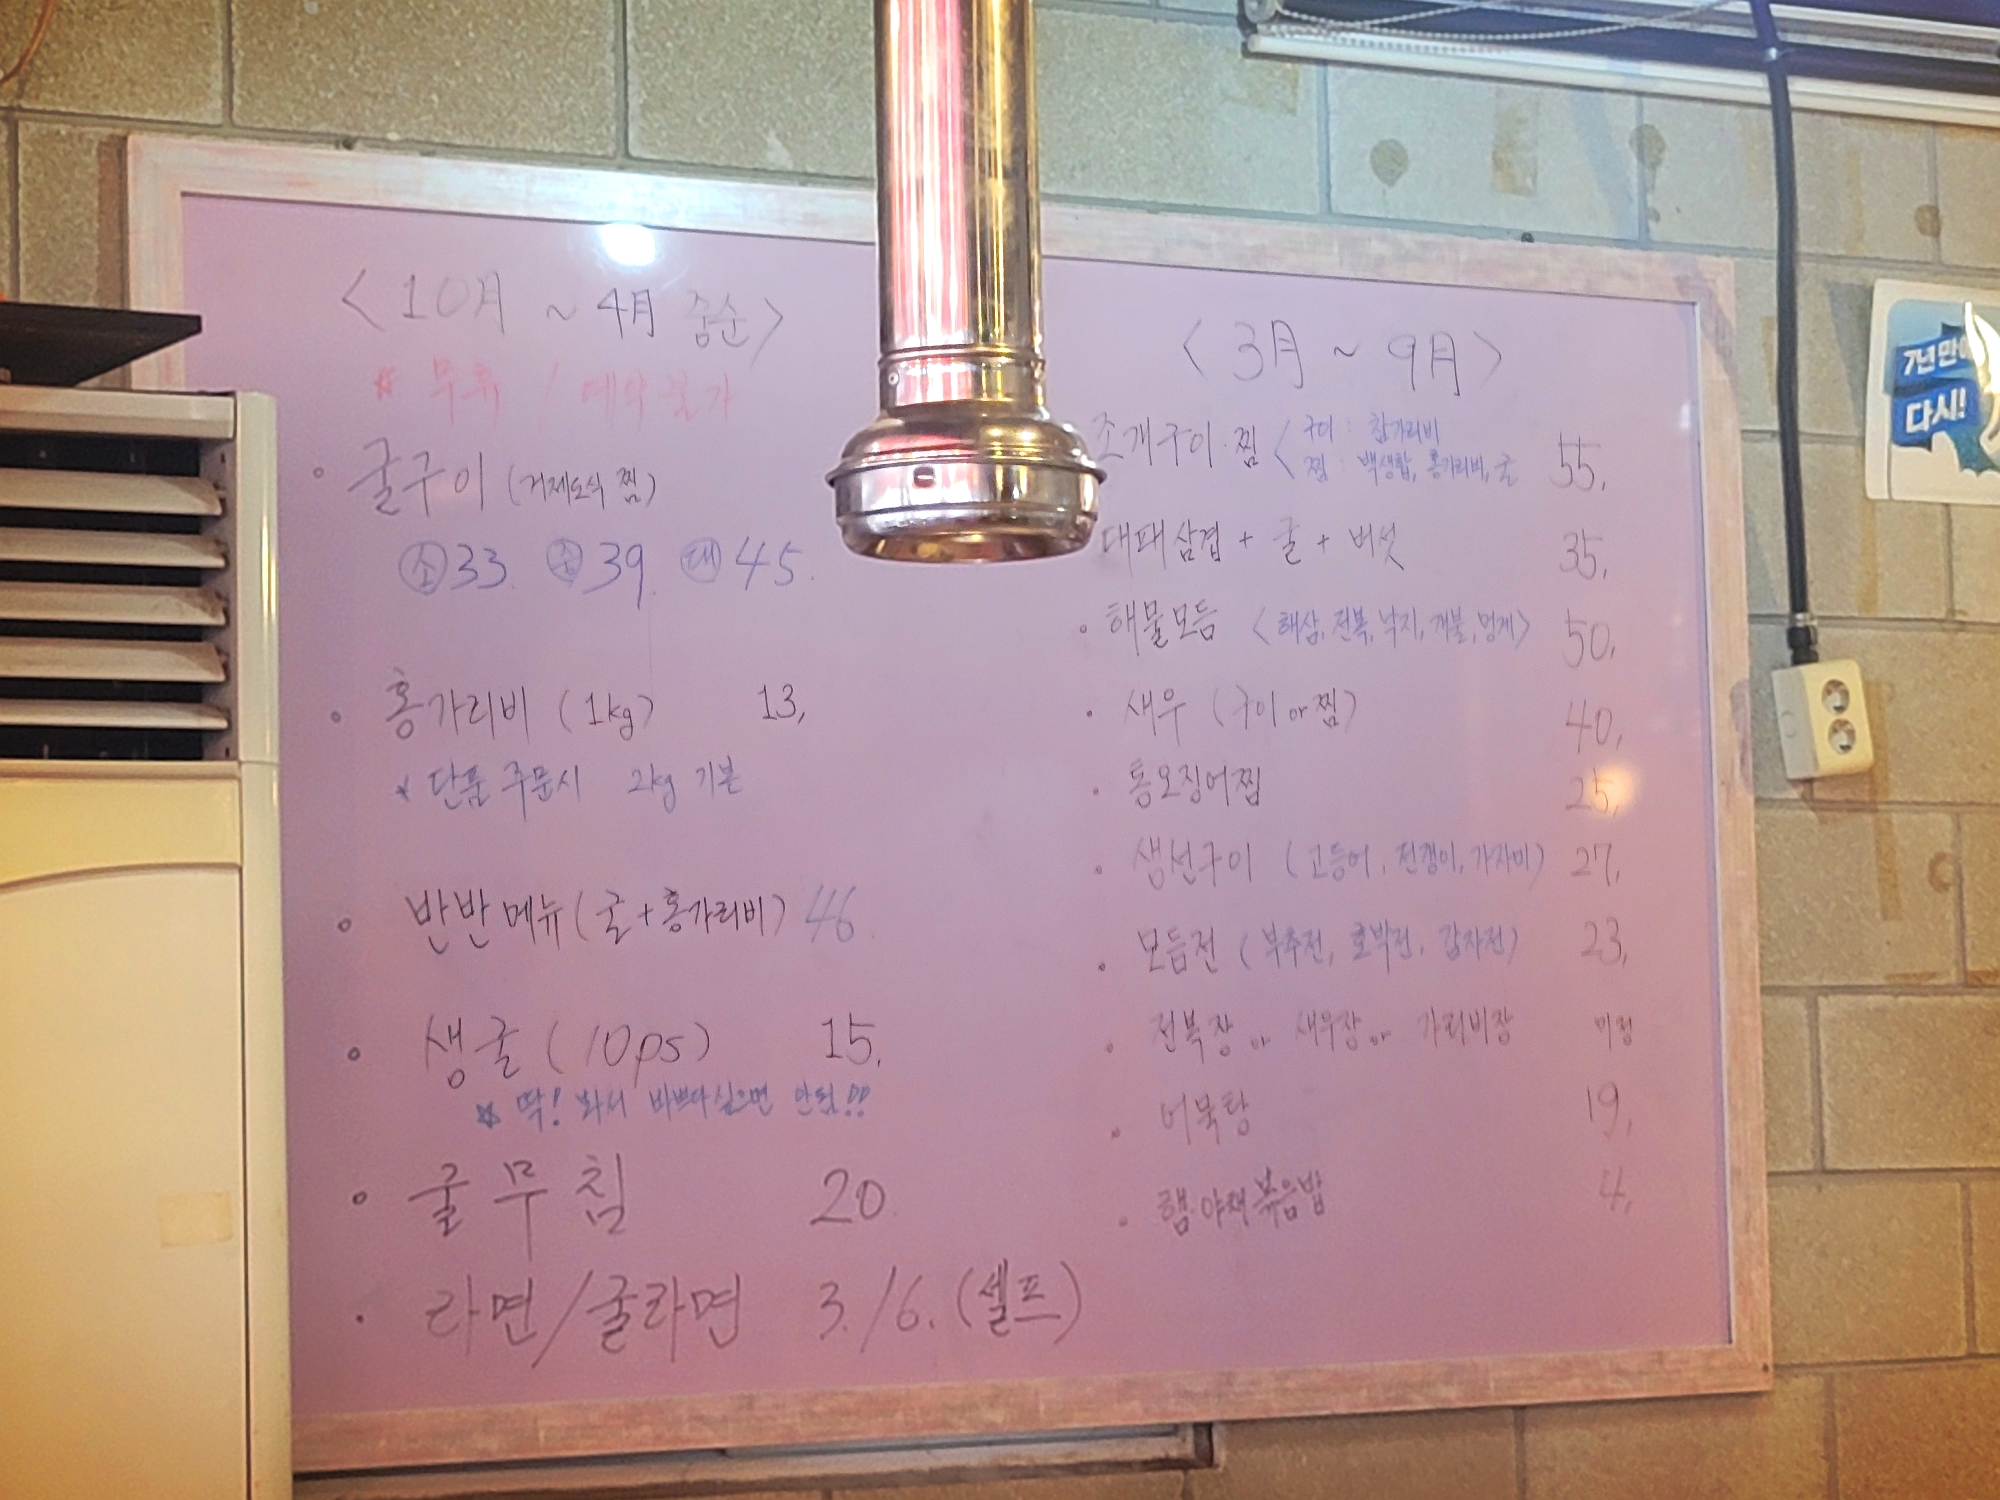 <10月 ~ 4月 중순>
* 무휴 / 예약불가
굴구이 (거제도식 찜)
소 33. 중 39. 대 45.
홍가리비 (1kg) 13,
* 단품 주문시 2kg 기본
반반메뉴 (굴+홍가리비) 46.
생굴 (10ps) 15,
* 딱! 봐서 바쁘다싶으면 안됨!!
굴무침 20.
라면/굴라면 3./6. (셀프)
<3月 ~ 9月>
조개구이·찜 < 구이 : 참가리비
찜 : 백생합, 홍가리비, 굴 55,
대패삼겹 + 굴 + 버섯 35,
해물모듬 <해삼, 전복, 낙지, 개불, 멍게> 50,
새우 (구이 or 찜) 40,
통오징어찜 25,
생선구이 (고등어, 전갱이, 가자미) 27,
모듬전 (부추전, 호박전, 감자전) 23,
전복장 or 새우장 or 가리비장 미정
어묵탕 19,
햄·야채볶음밥 4,
7년만에
다시!